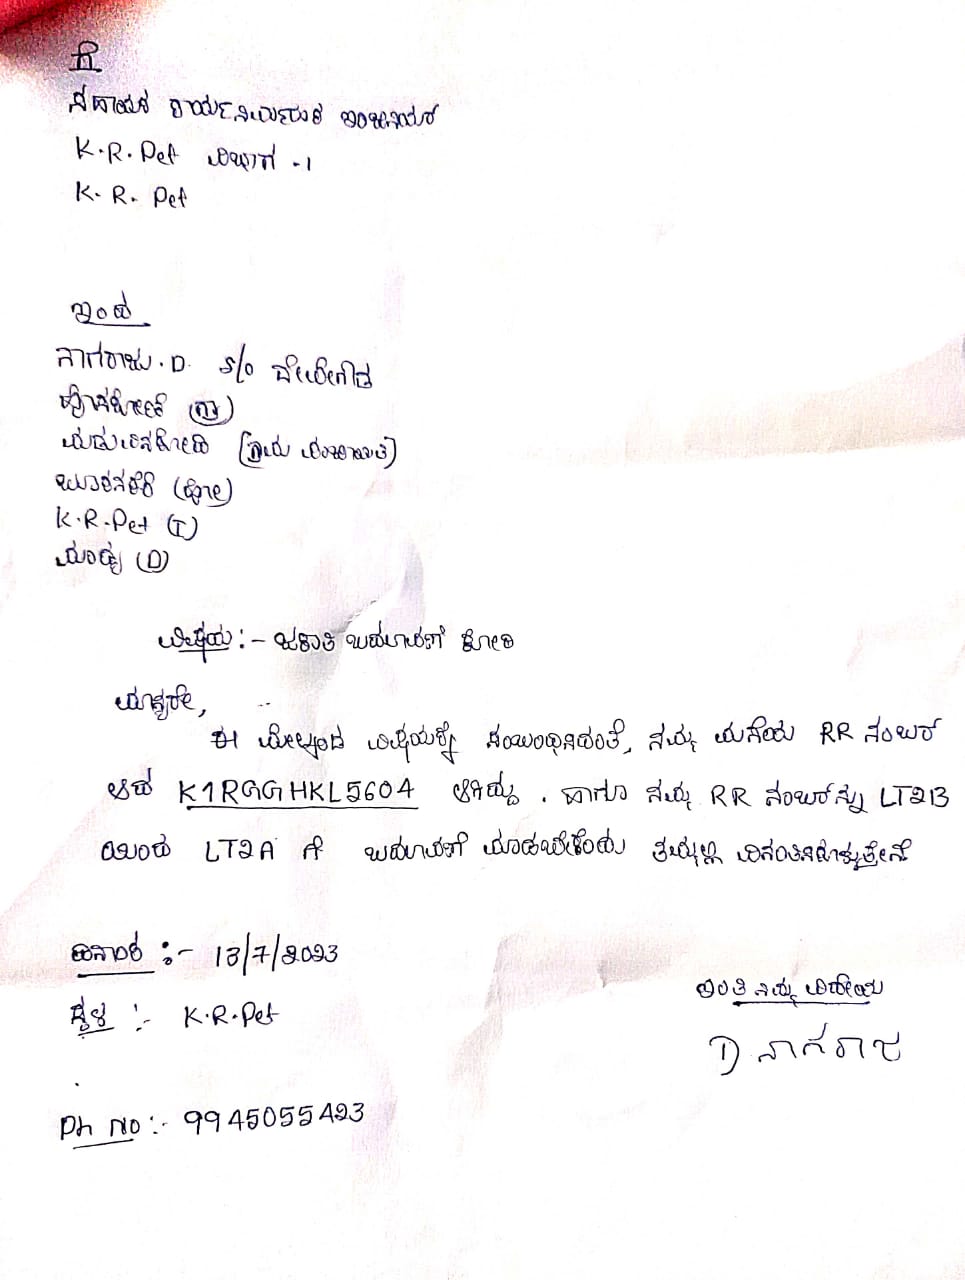 ಗೆ
ಸಹಾಯಕ ಕಾರ್ಯನಿರ್ವಾಹಕ ಇಂಜಿನಿಯರ್
K.R.Pet ವಿಭಾಗ -1
K. R. Pet
ಇಂದ
ನಾಗರಾಜು.D. S/o
(ಗ್ರಾಮ ಪಂಚಾಯಿತಿ)
(ಹೋ)
K.R.Pet (T)
ಮಂಡ್ಯ (D)
ವಿಷಯ:- ಜಕಾತಿ ಬದಲಾವಣೆ ಕೋರಿ
ಮಾನ್ಯರೇ,
ಈ ಮೇಲ್ಕಂಡ ವಿಷಯಕ್ಕೆ ಸಂಬಂಧಿಸಿದಂತೆ, ನಮ್ಮ ಮನೆಯ RR ನಂಬರ್
ಆದ K1RGGHKL5604 ಆಗಿದ್ದು. ಹಾಗೂ ನಮ್ಮ RR ನಂಬರ್‌ನ್ನು LT2B
ಯಿಂದ LT2A ಗೆ ಬದಲಾವಣೆ ಮಾಡಬೇಕೆಂದು ತಮ್ಮಲ್ಲಿ ವಿನಂತಿಸಿಕೊಳ್ಳುತ್ತೇನೆ
ದಿನಾಂಕ :- 13/7/2023
ಸ್ಥಳ :- K.R.Pet
ಇಂತಿ ನಿಮ್ಮ ವಿಧೇಯ
D ನಾಗರಾಜ
Ph No:- 9945055423